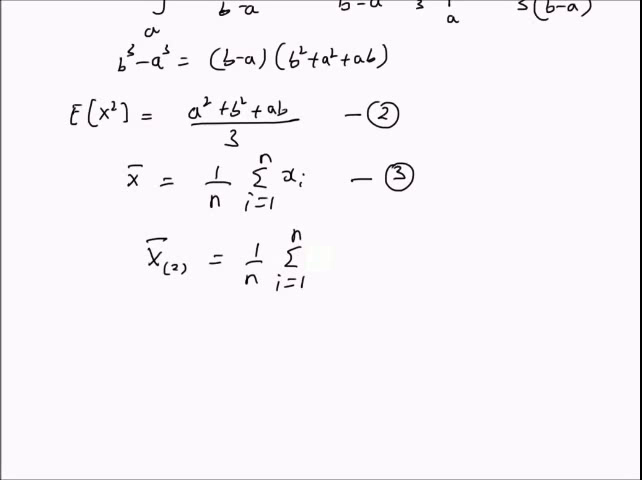 a b-a b-a 3 a 3(b-a)
b³-a³ = (b-a)(b²+a²+ab)
E[X²] = a²+b²+ab / 3 — ②
x̄ = 1/n Σ_{i=1}^{n} xᵢ — ③
X̄₍₂₎ = 1/n Σ_{i=1}^{n}